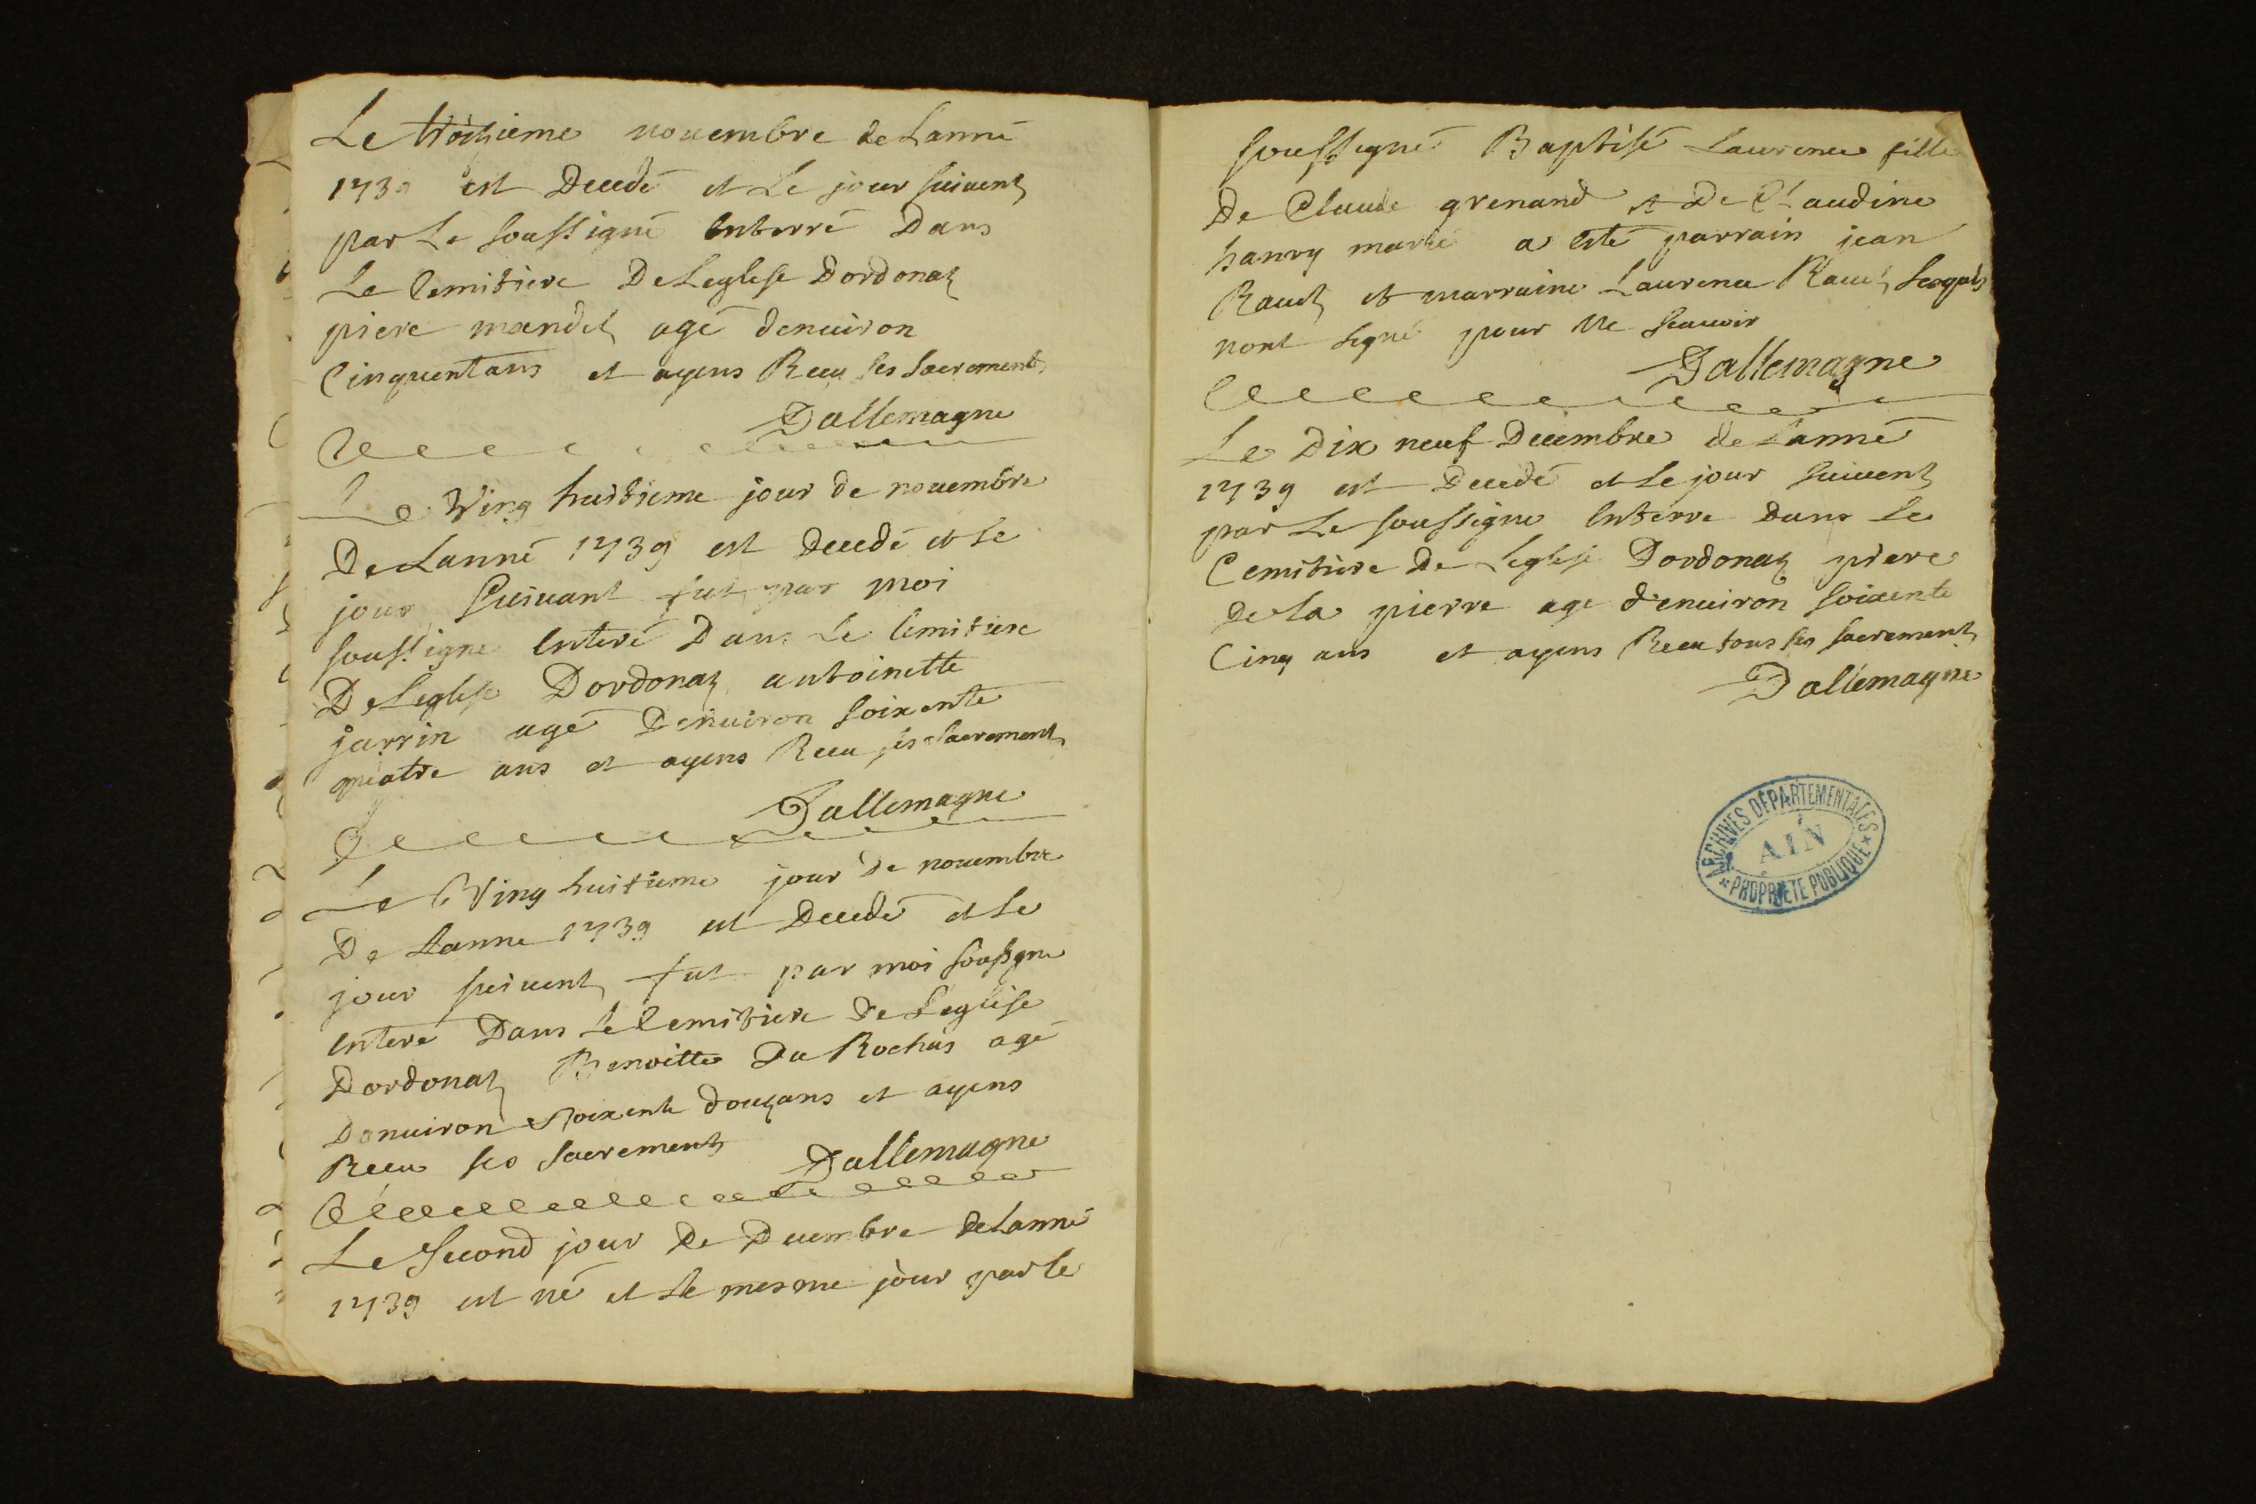 Le troisieme novembre de Lanné
1739 est Decedé et Le jour suivent
par Le soussigné Enterré Dans
Le Cemitiere De Leglise Dordonaz
piere mandet agé denuiron
Cinquent ans et ayens Receu ses sacrements
Dallemagne
Le Ving huitieme jour de nouembre
De Lanné 1739 est decedé et Le
jour suiuant fut par moi
soussigne Enteré Dans Le Cemitiere
De Leglise Dordonaz antoinette
jarrin agé Denuiron soixente
quatre ans et ayens Receu ses sacrements
Dallemagne
Le Ving huitieme jour de nouembre
De Lanne 1739 est Decedé et Le
jour suiuent fut par moi soussigne
Enteré Dans Le Cemitiere de Leglise
Dordonaz Benoitte Du Rochas agé
Denuiron soixente douz ans et ayens
Receu ses sacrements
Dallemagne
Le Second jour De Decembre de Lanné
1739 est né et Le mesme jour par le
soussigné Baptisé Laurence fille
De Claude grenand et De Claudine
hanry marié a esté parrain jean
Ravet et marraine Laurence Ravet Lesquels
nont signé pour ne scauoir
Dallemagne
Le Dix neuf Decembre de Lanné
1739 est Decedé et Le jour suiuent
par Le soussigne Enterre Dans Le
Cemitiere De Leglise Dordonaz piere
de La pierre age d'enuiron soixente
Cinq ans et ayens Receu tous ses sacrements
Dallemagne
ARCHIVES DÉPARTEMENTALES
AIN
* PROPRIÉTÉ PUBLIQUE *